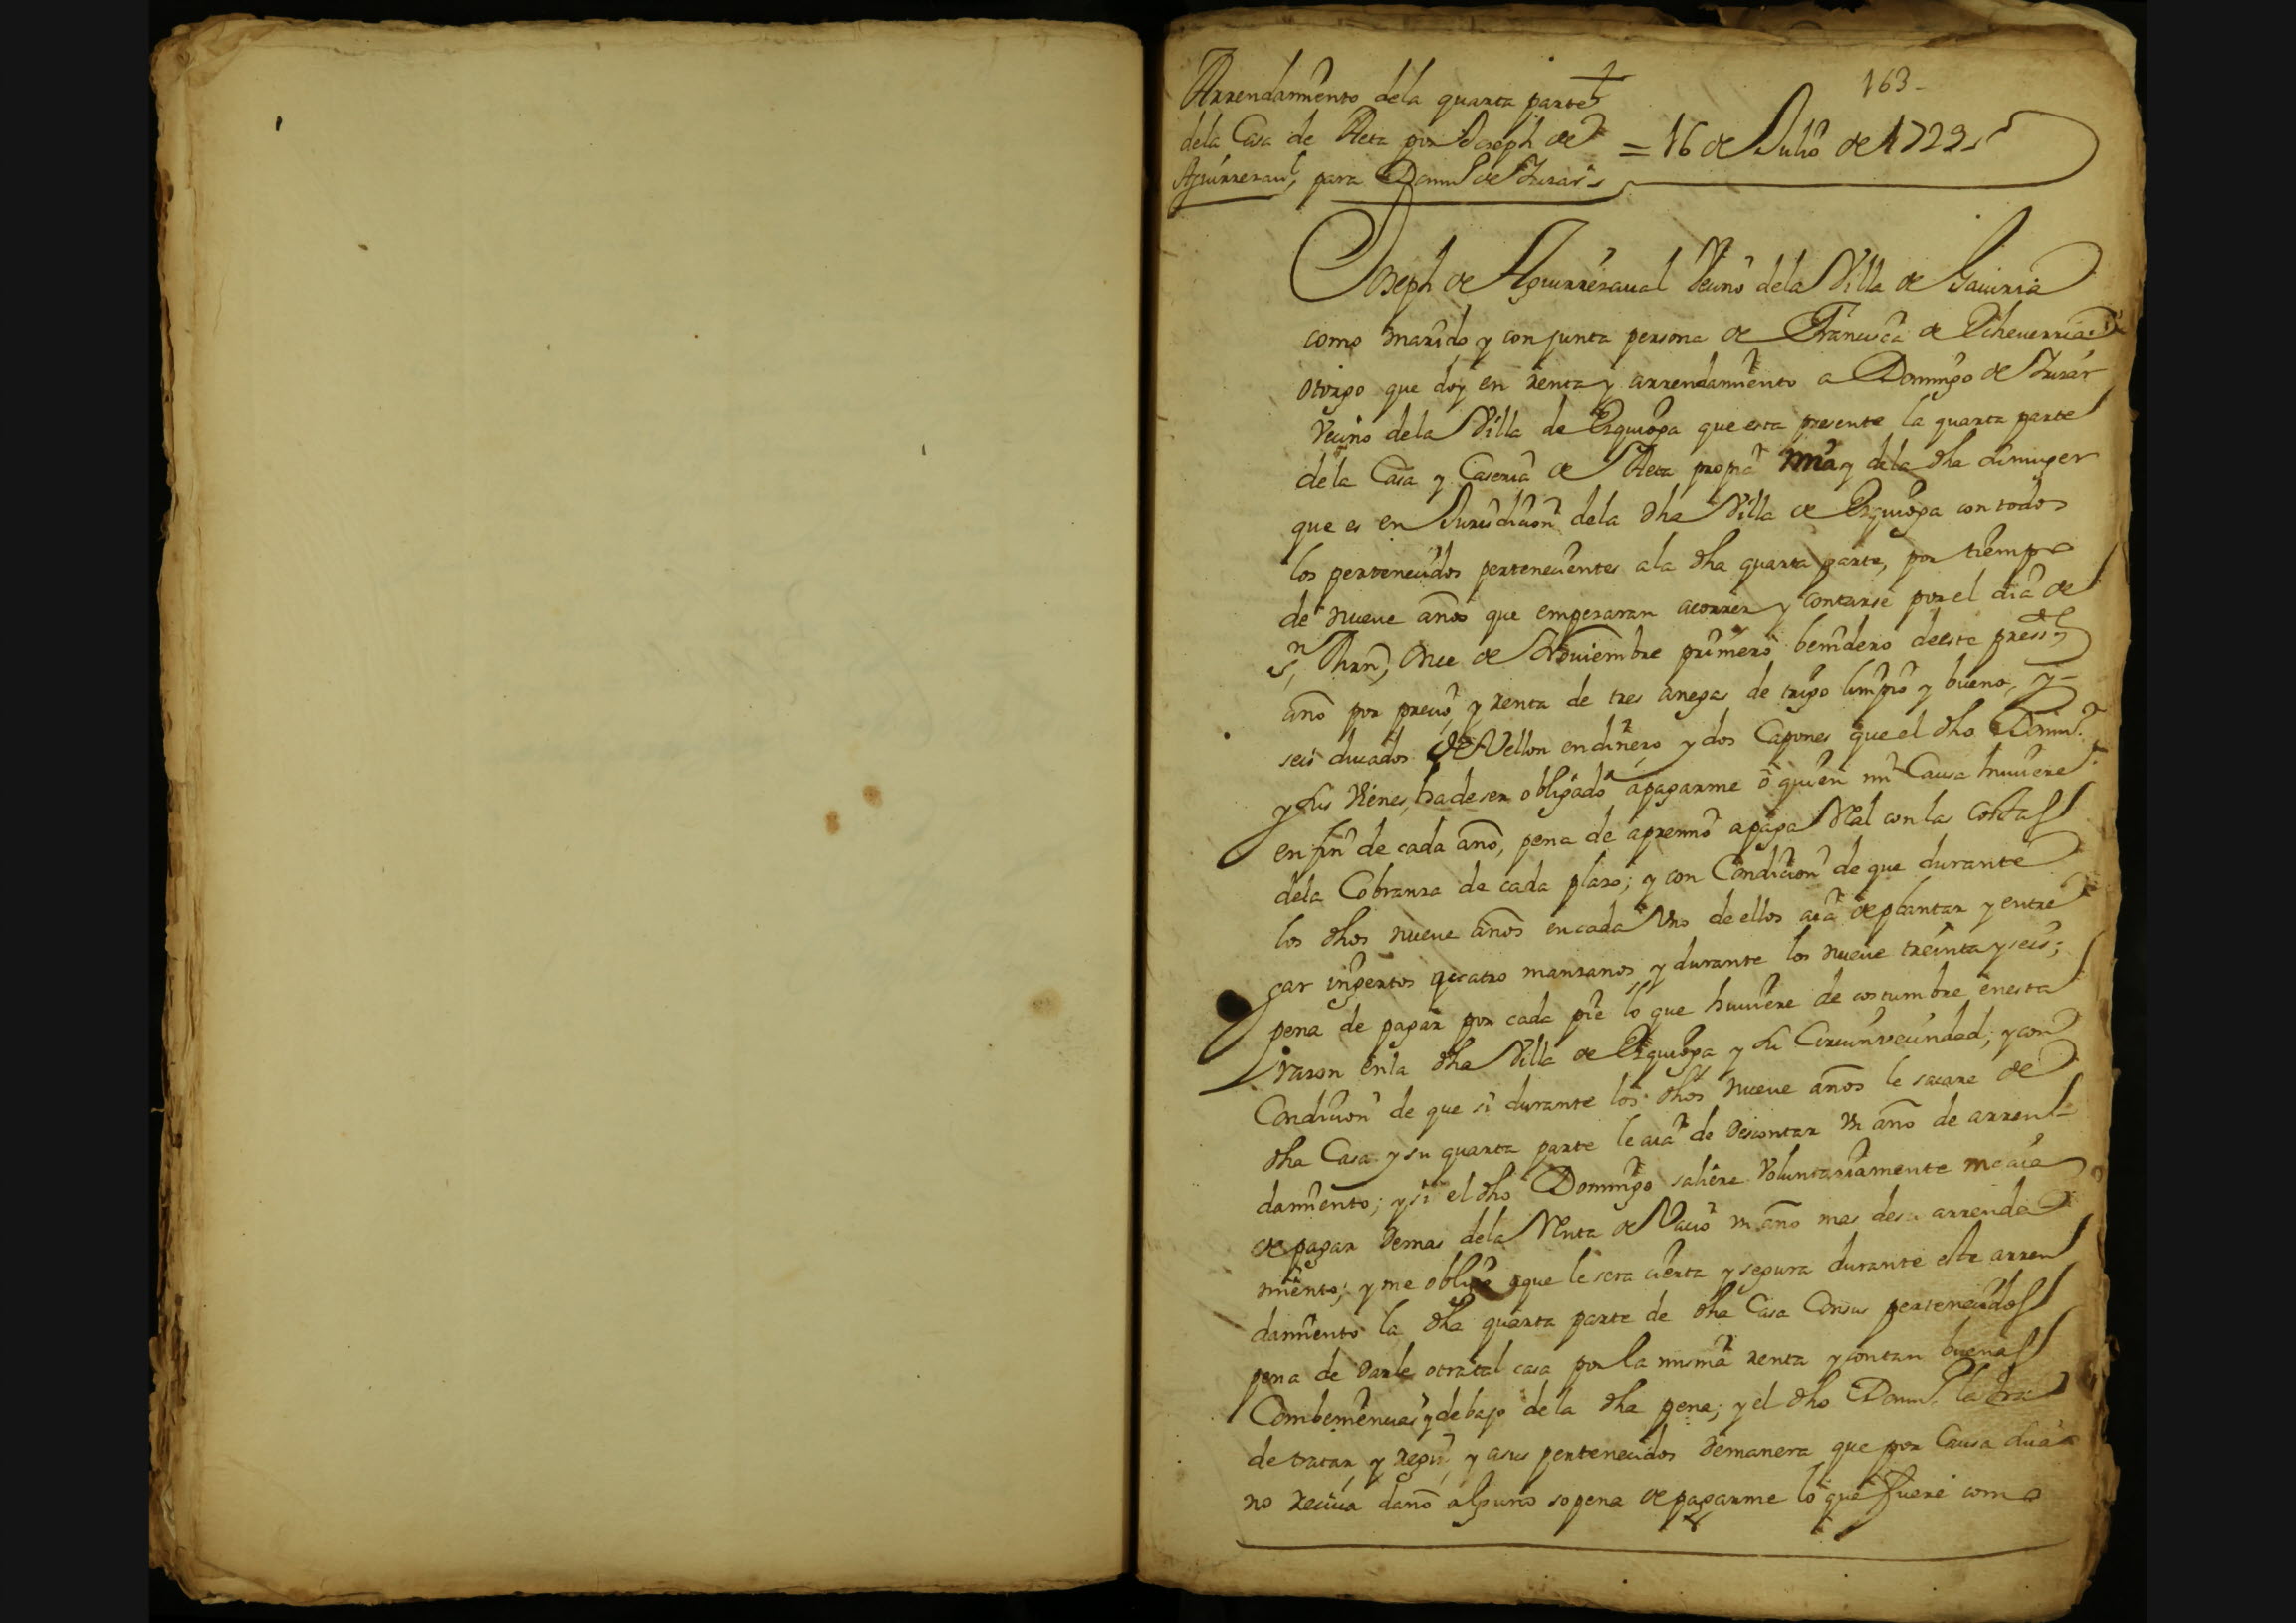 163-
Arrendamiento dela quarta parte
dela Casa de Aeta por Joseph de
Aguirreçaul, para Domº de Yzusar
= 16 de Julio de 1729
Joseph de Aguirreçaual Veçino dela Villa de Gaviria
como marido y conjunta persona de Françisca de Echeuerria
otorgo que doy en renta y arrendamiento a Domingo de
Veçino dela Villa de Ezquioga que esta presente la quarta parte
dela Casa y Caseria de Aeta propia mia y dela dha su muger
que es en Jurisdicion dela dha Villa de Ezquioga con todos
los perteneçidos perteneçientes ala dha quarta parte, por tiempo
de nueue años que empezaran acorrer y contarse por el dia de
Sn Mrn, Onçe de Noviembre primero benidero deeste press.te
año por preçio y renta de tres anegas de trigo limpio y bueno, y
seis ducados de Vellon en dinero y dos Capones que el dho Domº
y sus Vienes, ha de ser obligado apagarme o quien mi Causa huuiere
en fin de cada año, pena de apremio apaga Real con las costas
dela Cobranza de cada plazo; y con Condiçion de que durante
los dhos nueue años encada Vno de ellos aia de plantar y entre
gar ingertos quatro manzanos, y durante los nueue treinta y seis;
pena de pagar por cada pie lo que huuiere de costumbre enesta
razon enla dha Villa de Ezquioga y su Circunveçindad; y con
Condiçion de que si durante los dhos nueue años le sacare de
dha Casa y su quarta parte le aia de Descontar Vn año de arren
damiento; y si el dho Domingo saliere Voluntariamente me aia
de pagar demas dela Renta de Vaçio vn año mas de su arrenda
miento; y me obligo que le sera çierta y segura durante este arren
damiento la dha quarta parte de dha Casa Consus perteneçidos
pena de Darle otra tal casa por la misma renta y contan buenas
Combeniençias y debajo dela dha pena; y el dho Domº la
de tratar y regir, y asus perteneçidos Demanera que por Causa suia
no reçiua daño alguno so pena de pagarme lo que fuere como